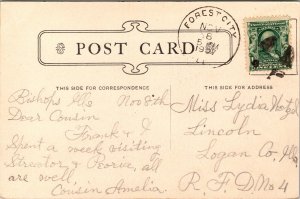 FOREST CITY
NOV
6
POST CARD
THIS SIDE FOR CORRESPONDENCE
THIS SIDE FOR ADDRESS
Bishops Ills Nov 8th
Dear Cousin
Frank & I
Spent a week visiting
Streator & Peoria, all
are well,
Cousin Amelia.
Miss Lydia
Lincoln
Logan Co, Ills
R. F. D. No 4